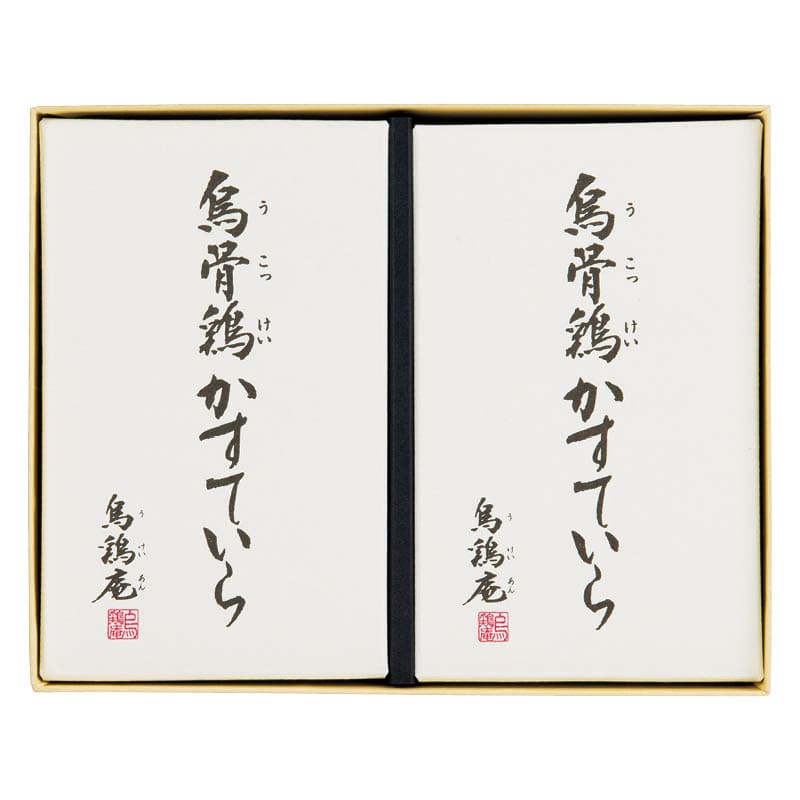 烏骨鶏かすていら
うこっけい
烏鶏庵
うけいあん
烏鶏庵
烏骨鶏かすていら
うこっけい
烏鶏庵
うけいあん
烏鶏庵